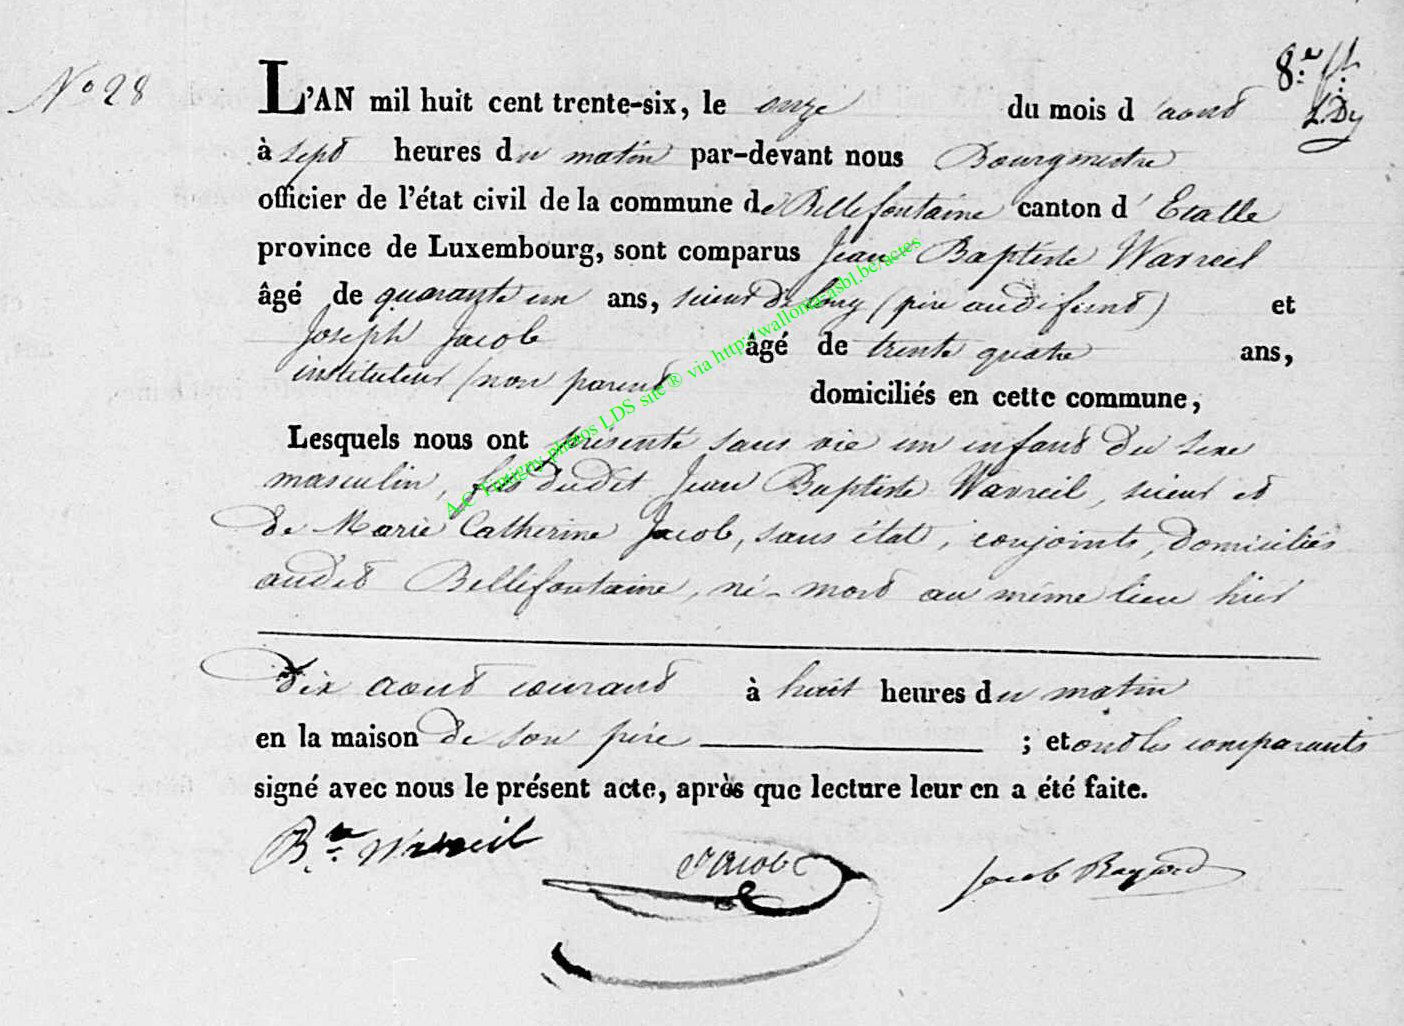 N° 28
8.e ft.
L'AN mil huit cent trente-six, le onze du mois d'aout
L.Dy
à sept heures du matin par-devant nous Bourgmestre
officier de l'état civil de la commune de Bellefontaine canton d'Etalle
province de Luxembourg, sont comparus Jean Baptiste Wavreil
âgé de quarante un ans, scieur de long (père au défunt) et
Joseph Jacob âgé de trente quatre ans,
instituteur (non parent domiciliés en cette commune,
Lesquels nous ont présenté sans vie un enfant du sexe
masculin, fils dudit Jean Baptiste Wavreil, scieur et
de Marie Catherine Jacob, sans état, conjoints, domiciliés
audit Bellefontaine, né-mort au même lieu hier
dix aout courant à huit heures du matin
en la maison de son père ; et ont les comparants
signé avec nous le présent acte, après que lecture leur en a été faite.
B.te Wavreil Jacob Jacob
A.C. Tintigny photos LDS site® via http://wallonia-asbl.be/actes